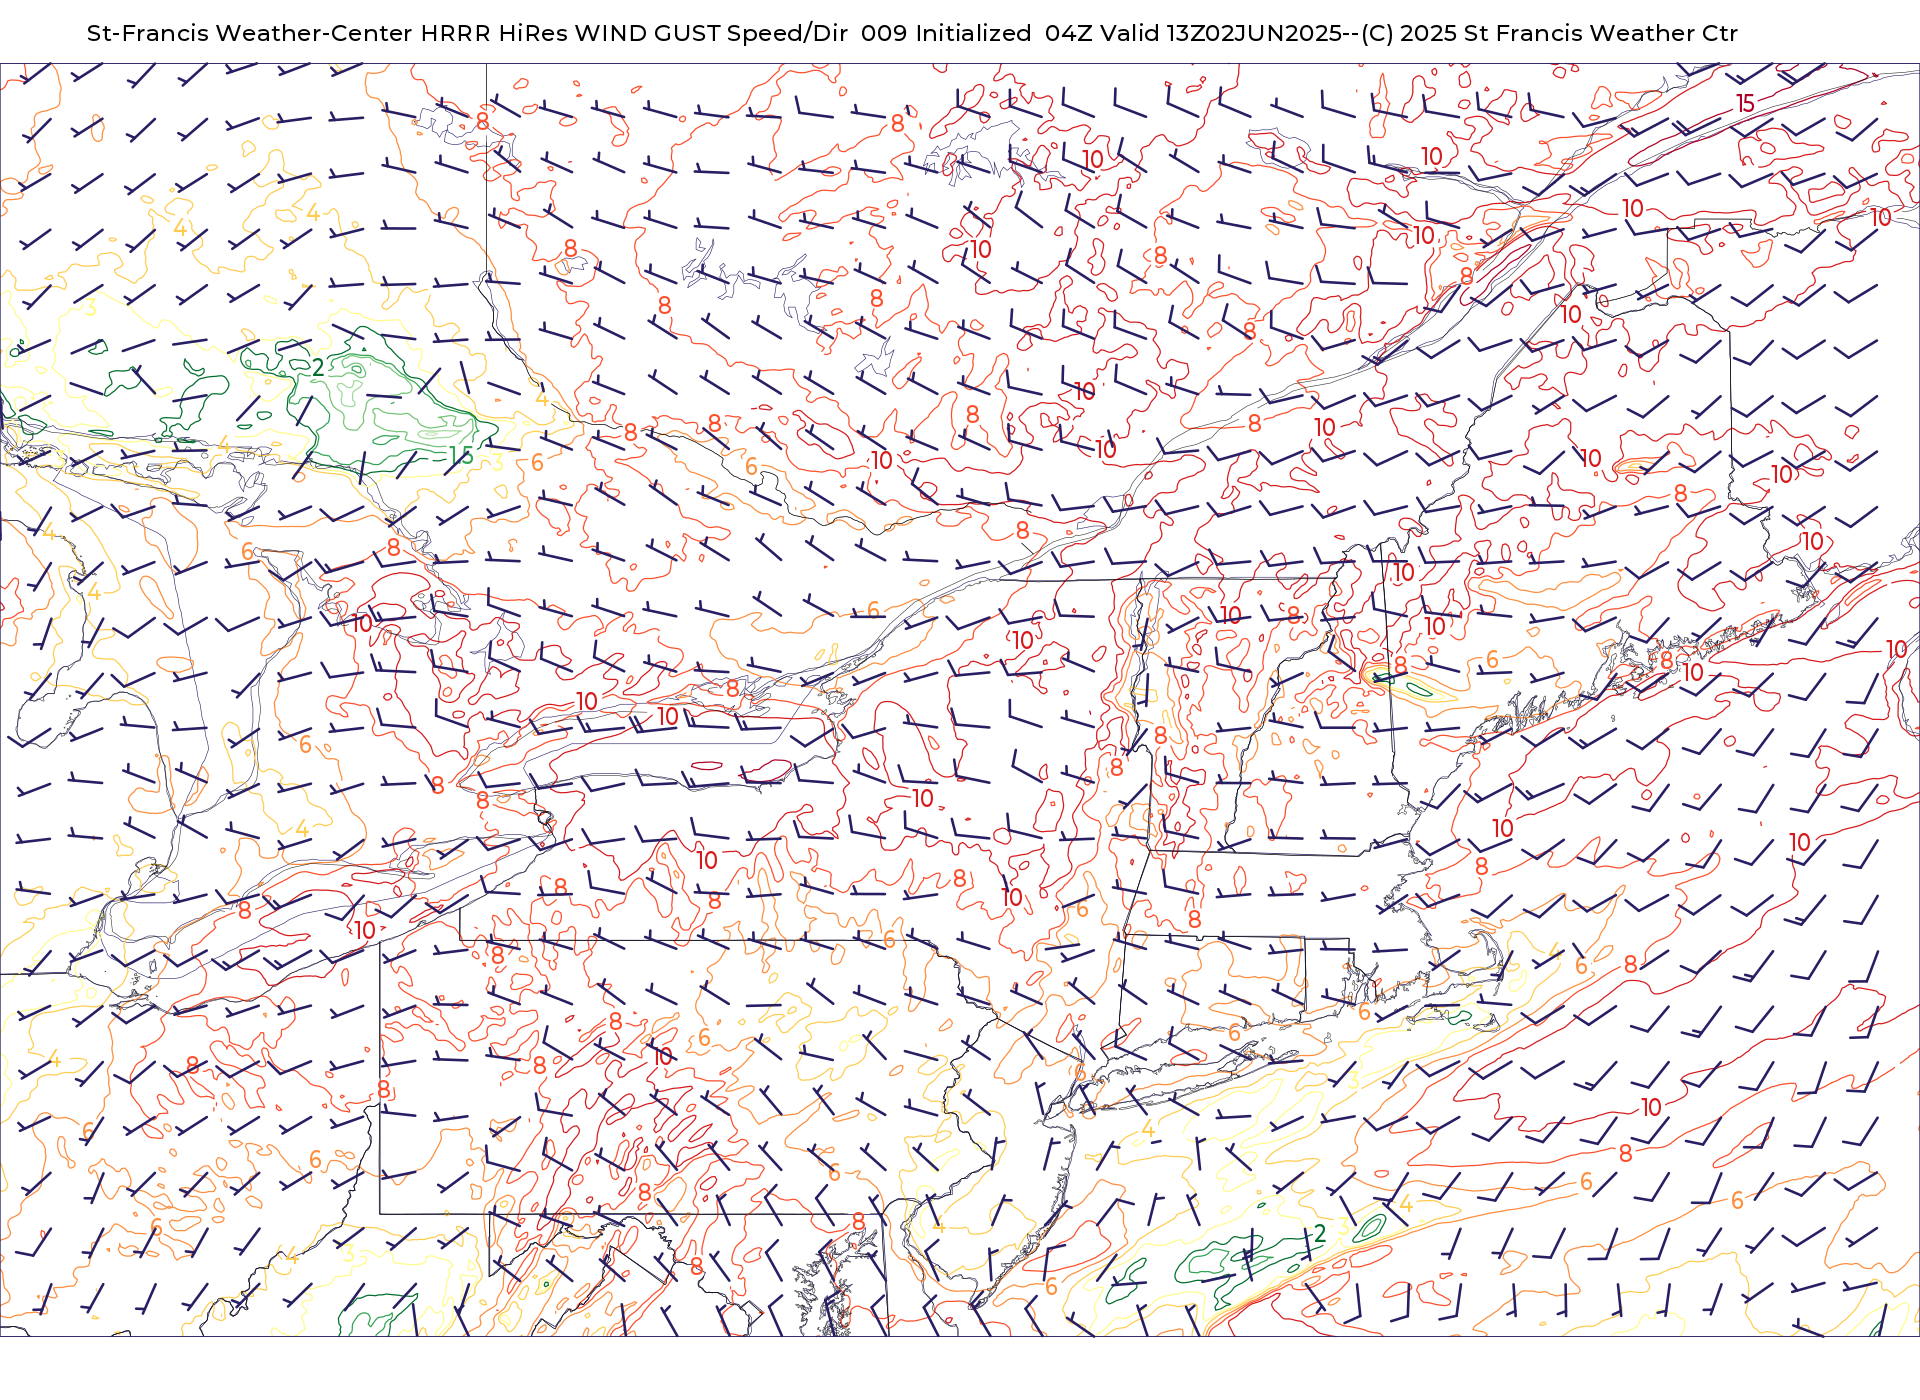 St-Francis Weather-Center HRRR HiRes WIND GUST Speed/Dir 009 Initialized 04Z Valid 13Z02JUN2025--(C) 2025 St Francis Weather Ctr
15
8 8
10 10
4 4 10 10
8 10 8 10
8
3 8 8 10
8
2
4 10
8 8 8 8 10
4 6 6 10 10 10 10
15 3 8
4 8 8
6 10
4 10
6 10 8 10
10 10
8 6 8 10
10 8 10
6 8
8 8 10 8
4 10 10
10 8
8 8 8 10
8 10 6 8
8 6 4 6 8
8 6 6 6
4 8 8 10 6
8 3
6 4 10
6 6 8
8 6 4 6
6 4 8
4 3 8 3 2
6